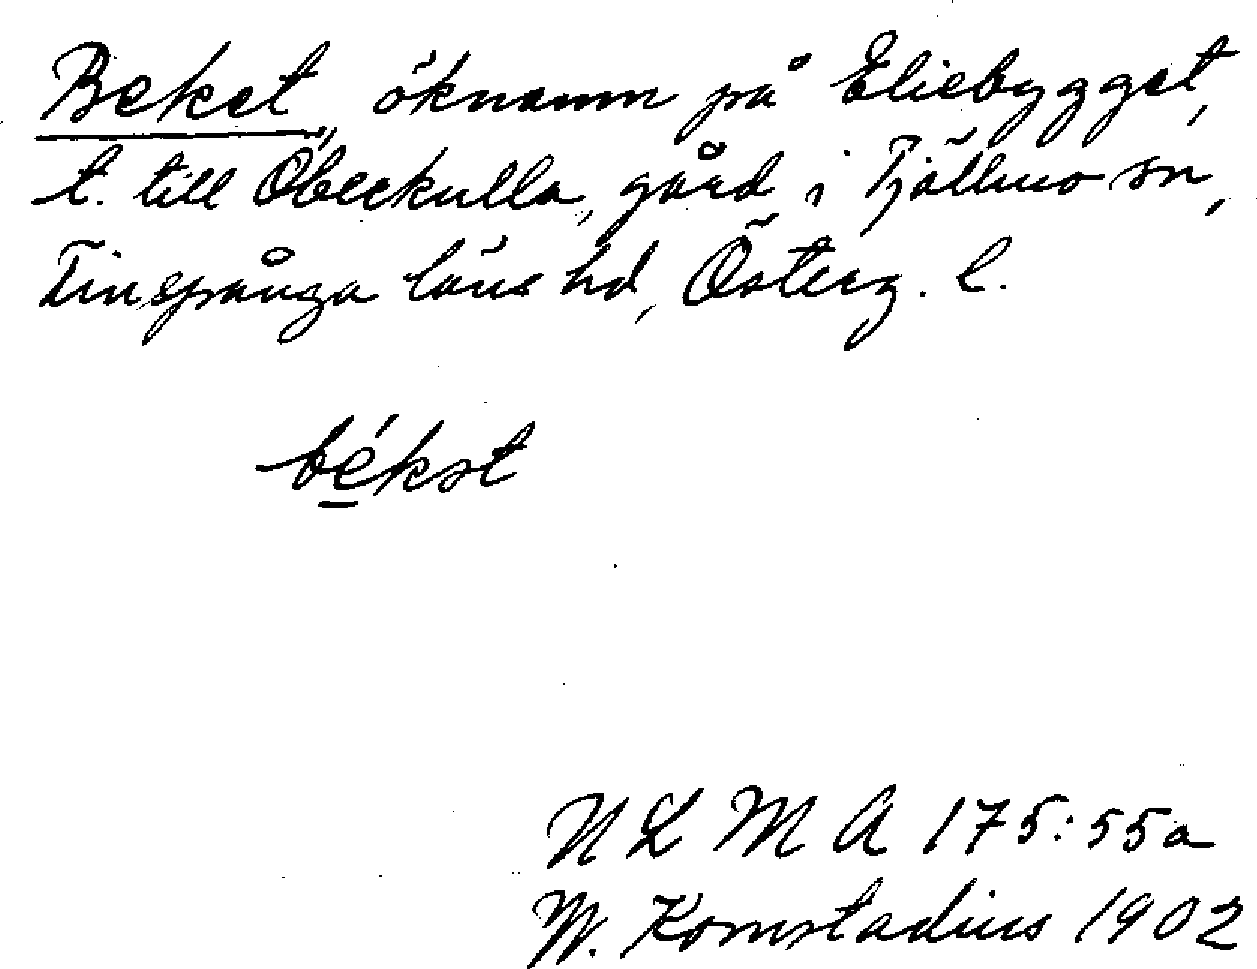 Beket, öknamn på Eliebygget,
t. till Öbeckulla, gård i Tjällmo sn,
Finspånga läns hd, Österg. l.
békət
N L M A 175:55a
W. Komstadius 1902